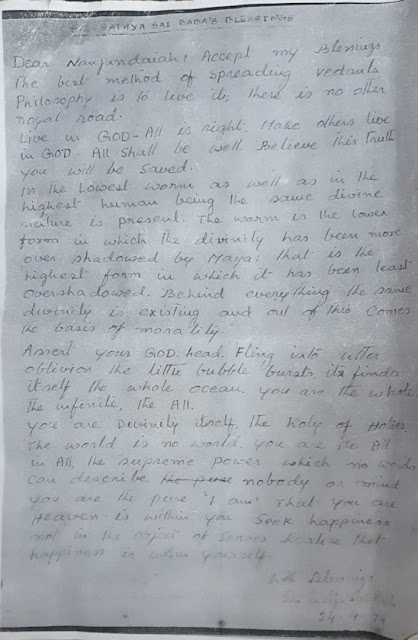 SATHYA SAI BABA'S BLESSINGS
Dear Nanjundaiah! Accept my Blessings
The best method of spreading vedanta
Philosophy is to live it, there is no other
royal road.
Live in GOD - All is right. Make others live
in GOD. All shall be well. Believe this Truth
you will be saved.
In the lowest worm as well as in the
highest human being the same divine
nature is present. The worm is the lower
form in which the divinity has been more
over shadowed by Maya; that is the
highest form in which it has been least
overshadowed. Behind everything the same
divinity is existing and out of this comes
the basis of morality.
Assert your GOD. head. Fling into utter
oblivion the little bubble bursts its finds
itself the whole ocean. you are the whole
the infinite, the All.
You are Divinity itself, the holy of Holies,
The world is no world. you are the All
in All, the supreme power which no words
can describe. nobody or mind
you are the pure 'I am' That you are
Heaven is within you Seek happiness
not in the object of senses. Realise that
happiness is within yourself.
with Blessings
24